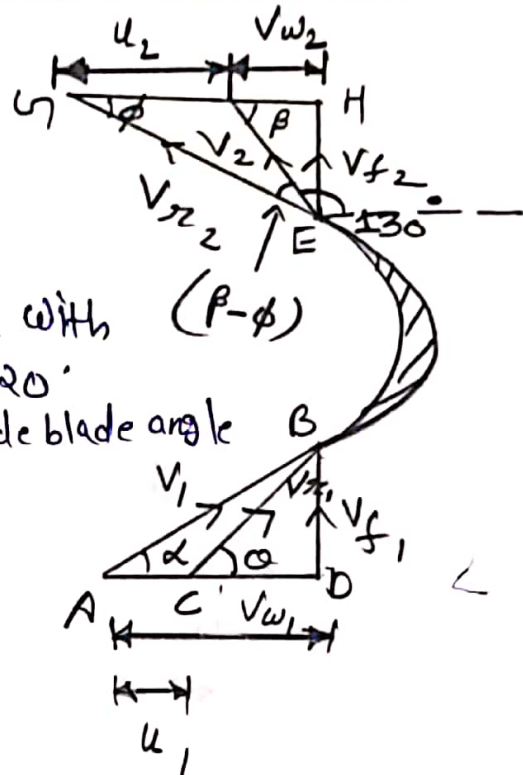 u₂ Vw₂
G ϕ β H
V₂ Vf₂
Vr₂ E 130°
with (β-ϕ)
20°
de blade angle B
V₁ Vr₁ Vf₁
α θ
A C Vw₁ D
u₁